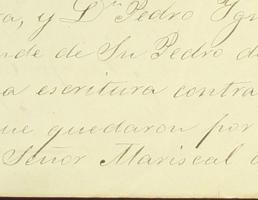 ta, y Dn Pedro Ign
nde de Su Pedro de
a escritura contra
ue quedaron por
Señor Mariscal d